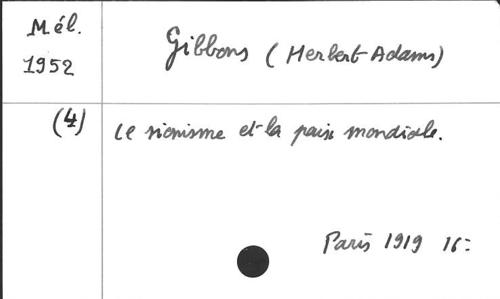 Mél.
1952
Gibbons (Herbert Adams)
(4)
Le sionisme et la paix mondiale.
Paris 1919 16=